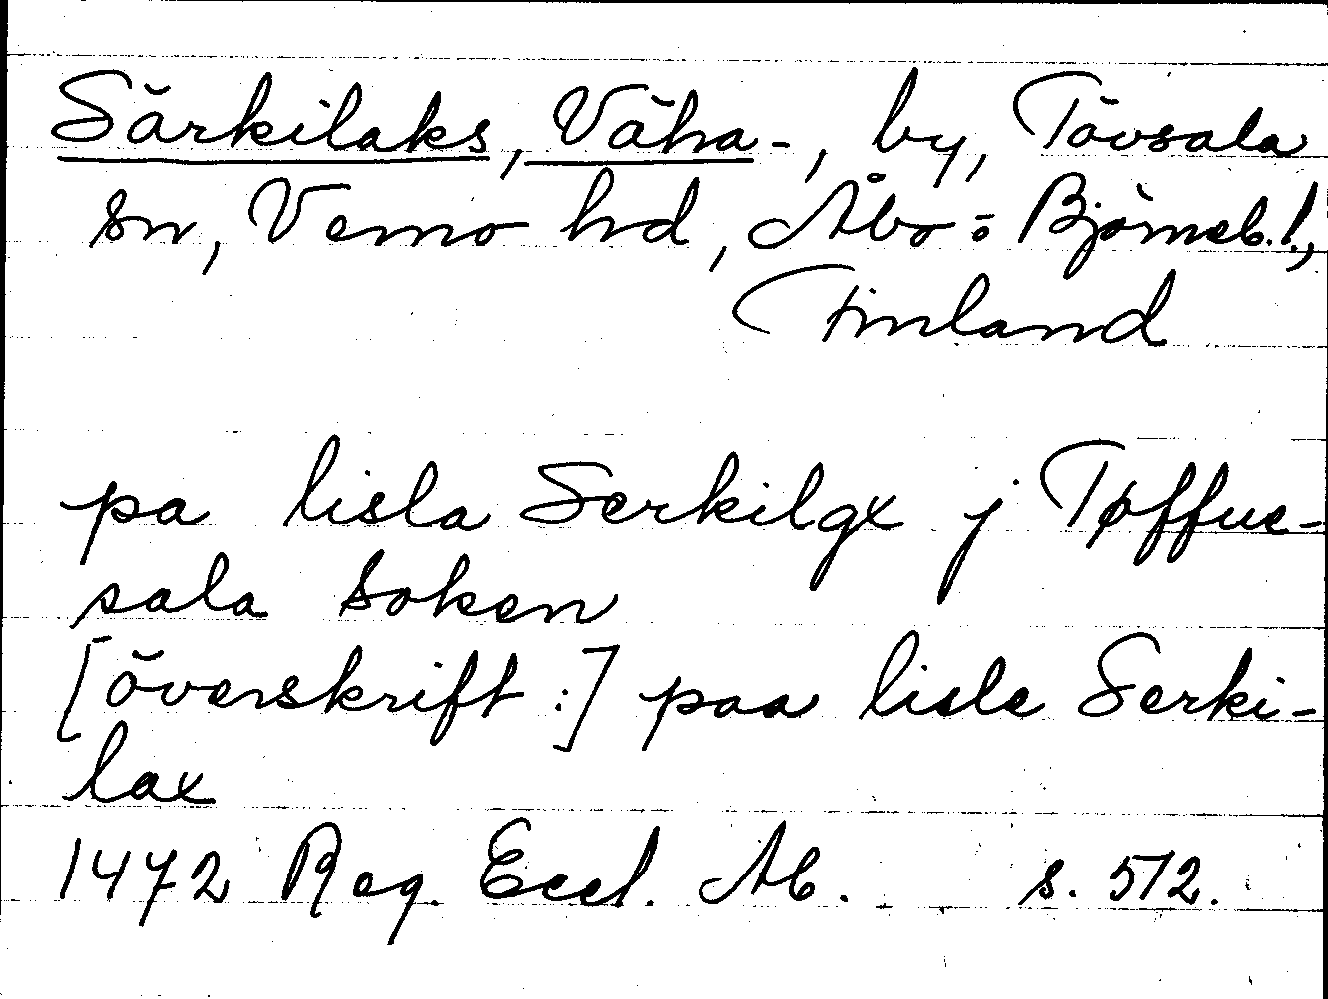 Särkilaks, Väha-, by, Tövsala
sn, Vemo hd, Åbo = Björneb. l.,
Finland
pa lisla Serkilgx j Tøffue-
sala soken
[överskrift:] paa lisle Serki-
lax
1472 Reg. Eccl. Ab. s. 572.